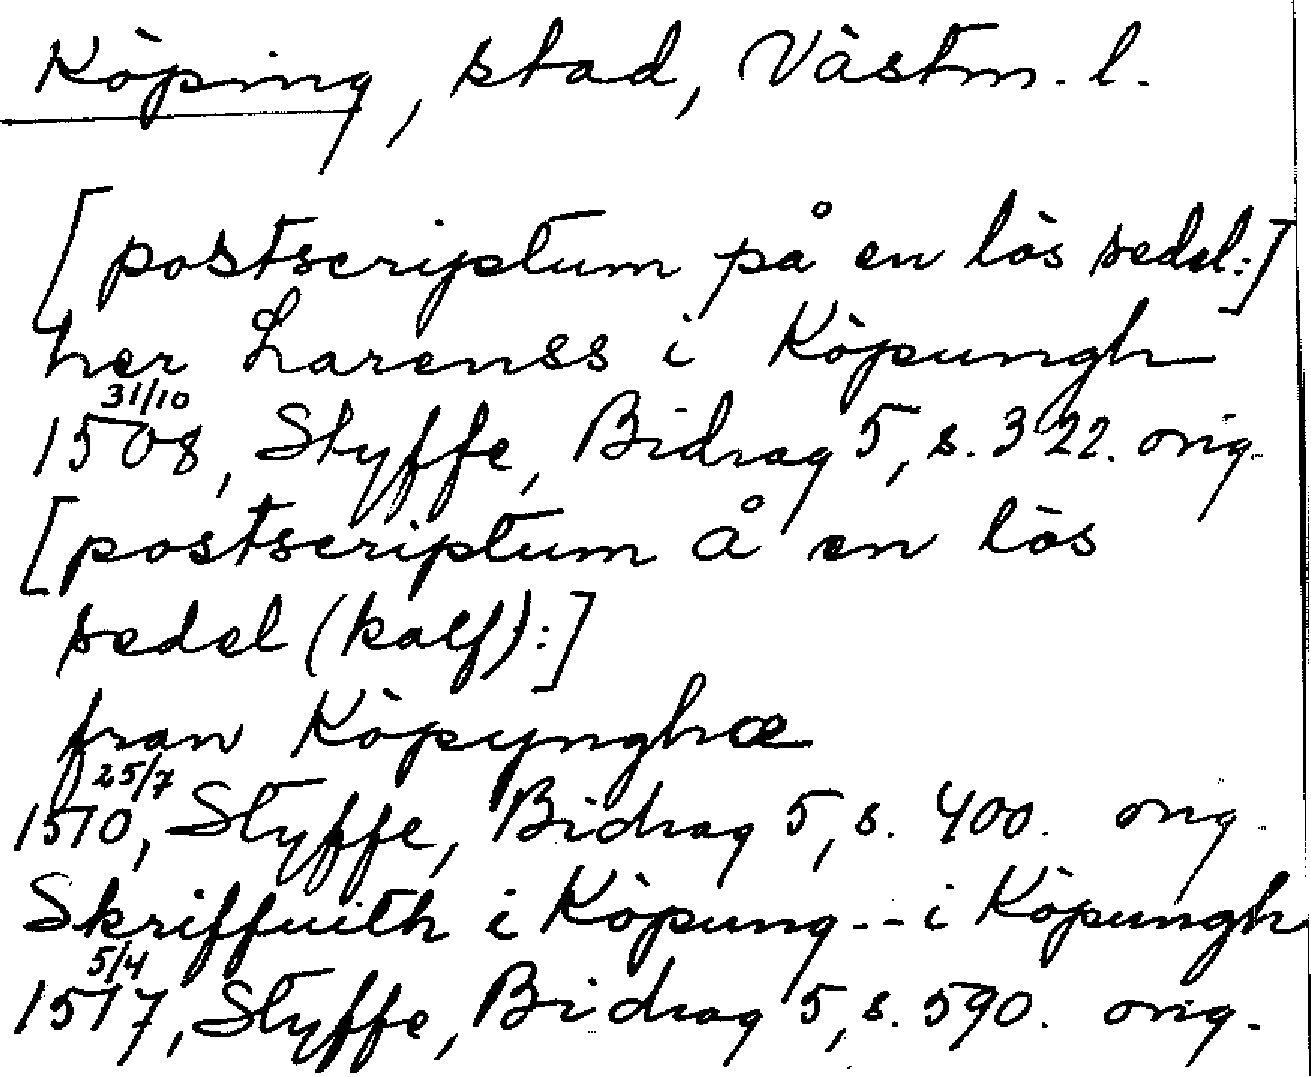 Köping, stad, Västm. l.
[postscriptum på en lös sedel:]
her Larenss i Köpungh
31/10
1508, Styffe, Bidrag 5, s. 322. orig.
[postscriptum å en lös
sedel (half):]
fran Köpynghæ
25/7
1510, Styffe, Bidrag 5, s. 400. orig.
Skriffuith i Köpung -- i Köpungh
5/4
1517, Styffe, Bidrag 5, s. 590. orig.